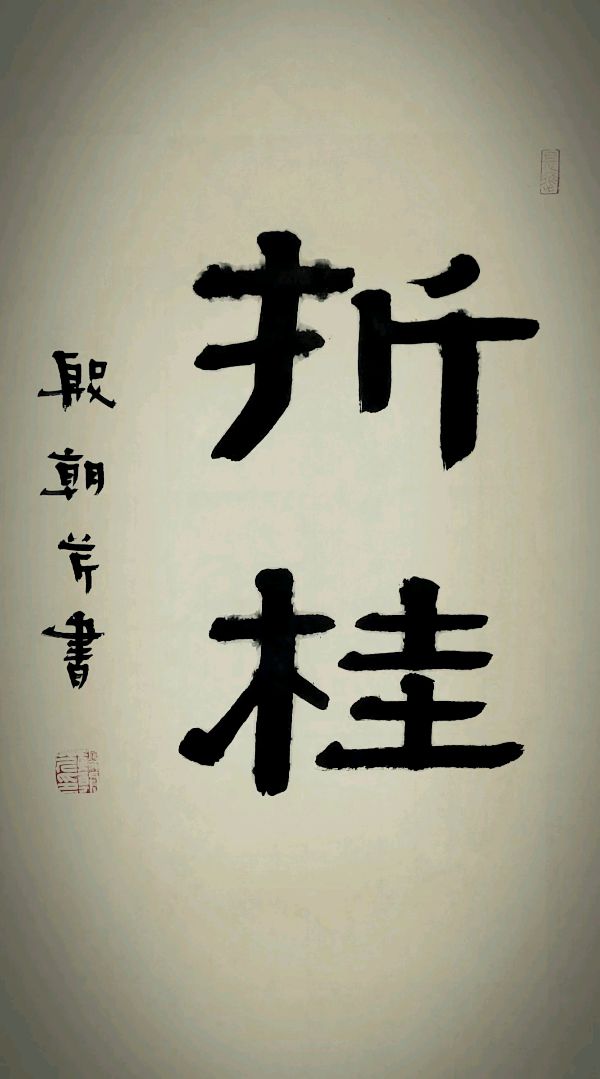 折桂
殷朝芹書